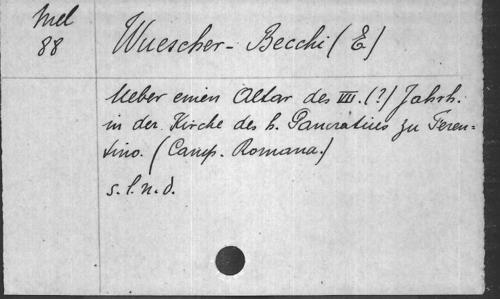 Mel
88
Wuescher-Becchi (E)
Ueber einen Altar des VII. (?) Jahrh.
in der Kirche des h. Pancratius zu Feren=
tino. (Camp. Romana.)
s. l. n. d.